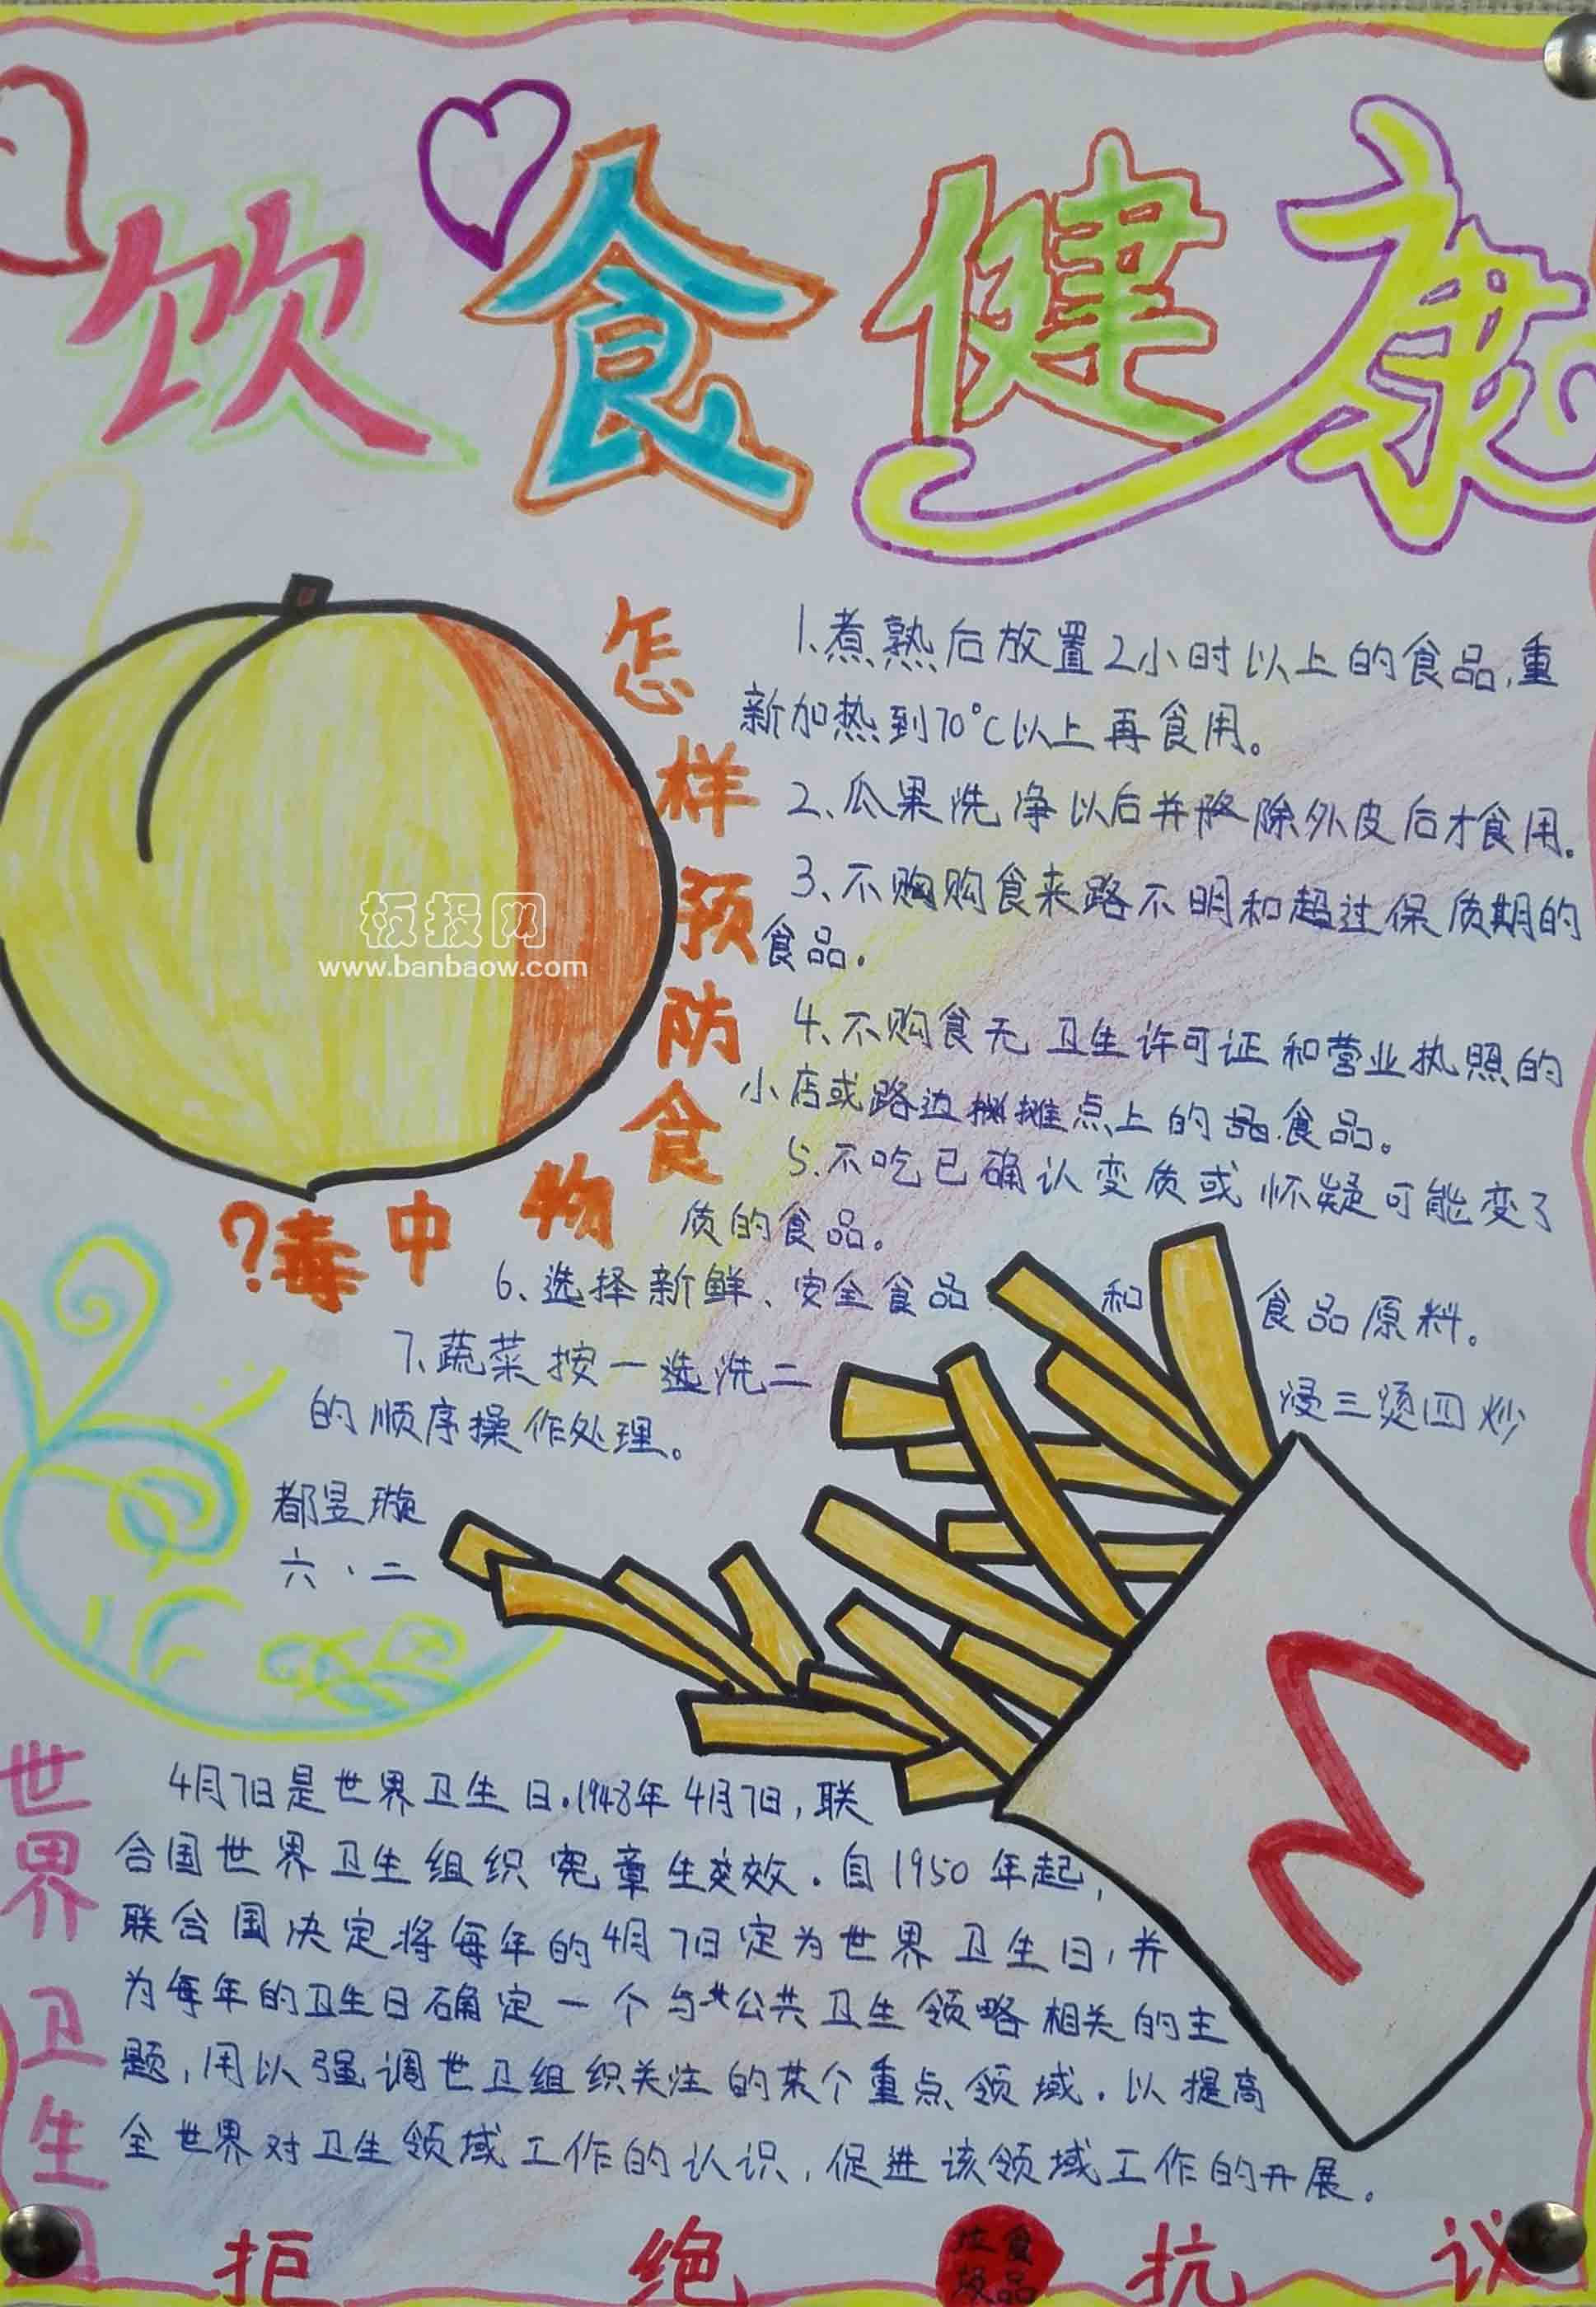 饮食健康
怎样预防食物中毒?
1.煮熟后放置2小时以上的食品,重
新加热到70°C以上再食用。
2、瓜果洗净以后并除外皮后才食用。
3、不购食来路不明和超过保质期的
食品.
4、不购食无卫生许可证和营业执照的
小店或路边摊点上的食品。
5.不吃已确认变质或怀疑可能变了
质的食品。
6、选择新鲜、安全食品和食品原料。
7、蔬菜按一选洗二浸三烫四炒
的顺序操作处理。
都昱璇
六·二
板报网
www.banbaow.com
M
世界卫生日
4月7日是世界卫生日.1948年4月7日,联
合国世界卫生组织宪章生效.自1950年起,
联合国决定将每年的4月7日定为世界卫生日,并
为每年的卫生日确定一个与公共卫生领略相关的主
题,用以强调世卫组织关注的某个重点领域.以提高
全世界对卫生领域工作的认识,促进该领域工作的开展。
拒绝垃圾食品抗议